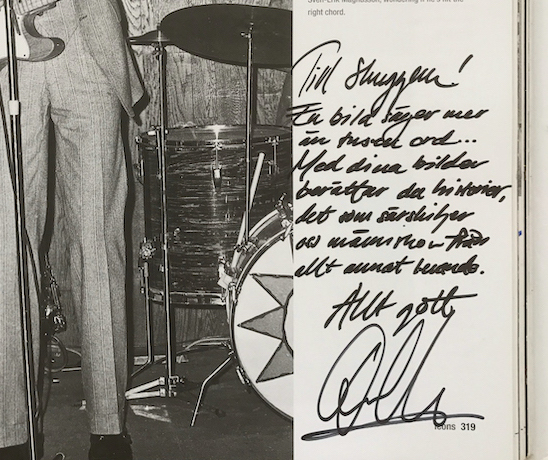 Sven-Erik Magnusson, wondering if he's hit the
right chord.
Till Skuggan!
En bild säger mer
än tusen ord...
Med dina bilder
berättar du historier,
det som särskiljer
oss människor från
allt annat levande.
Allt gott,
Icons 319